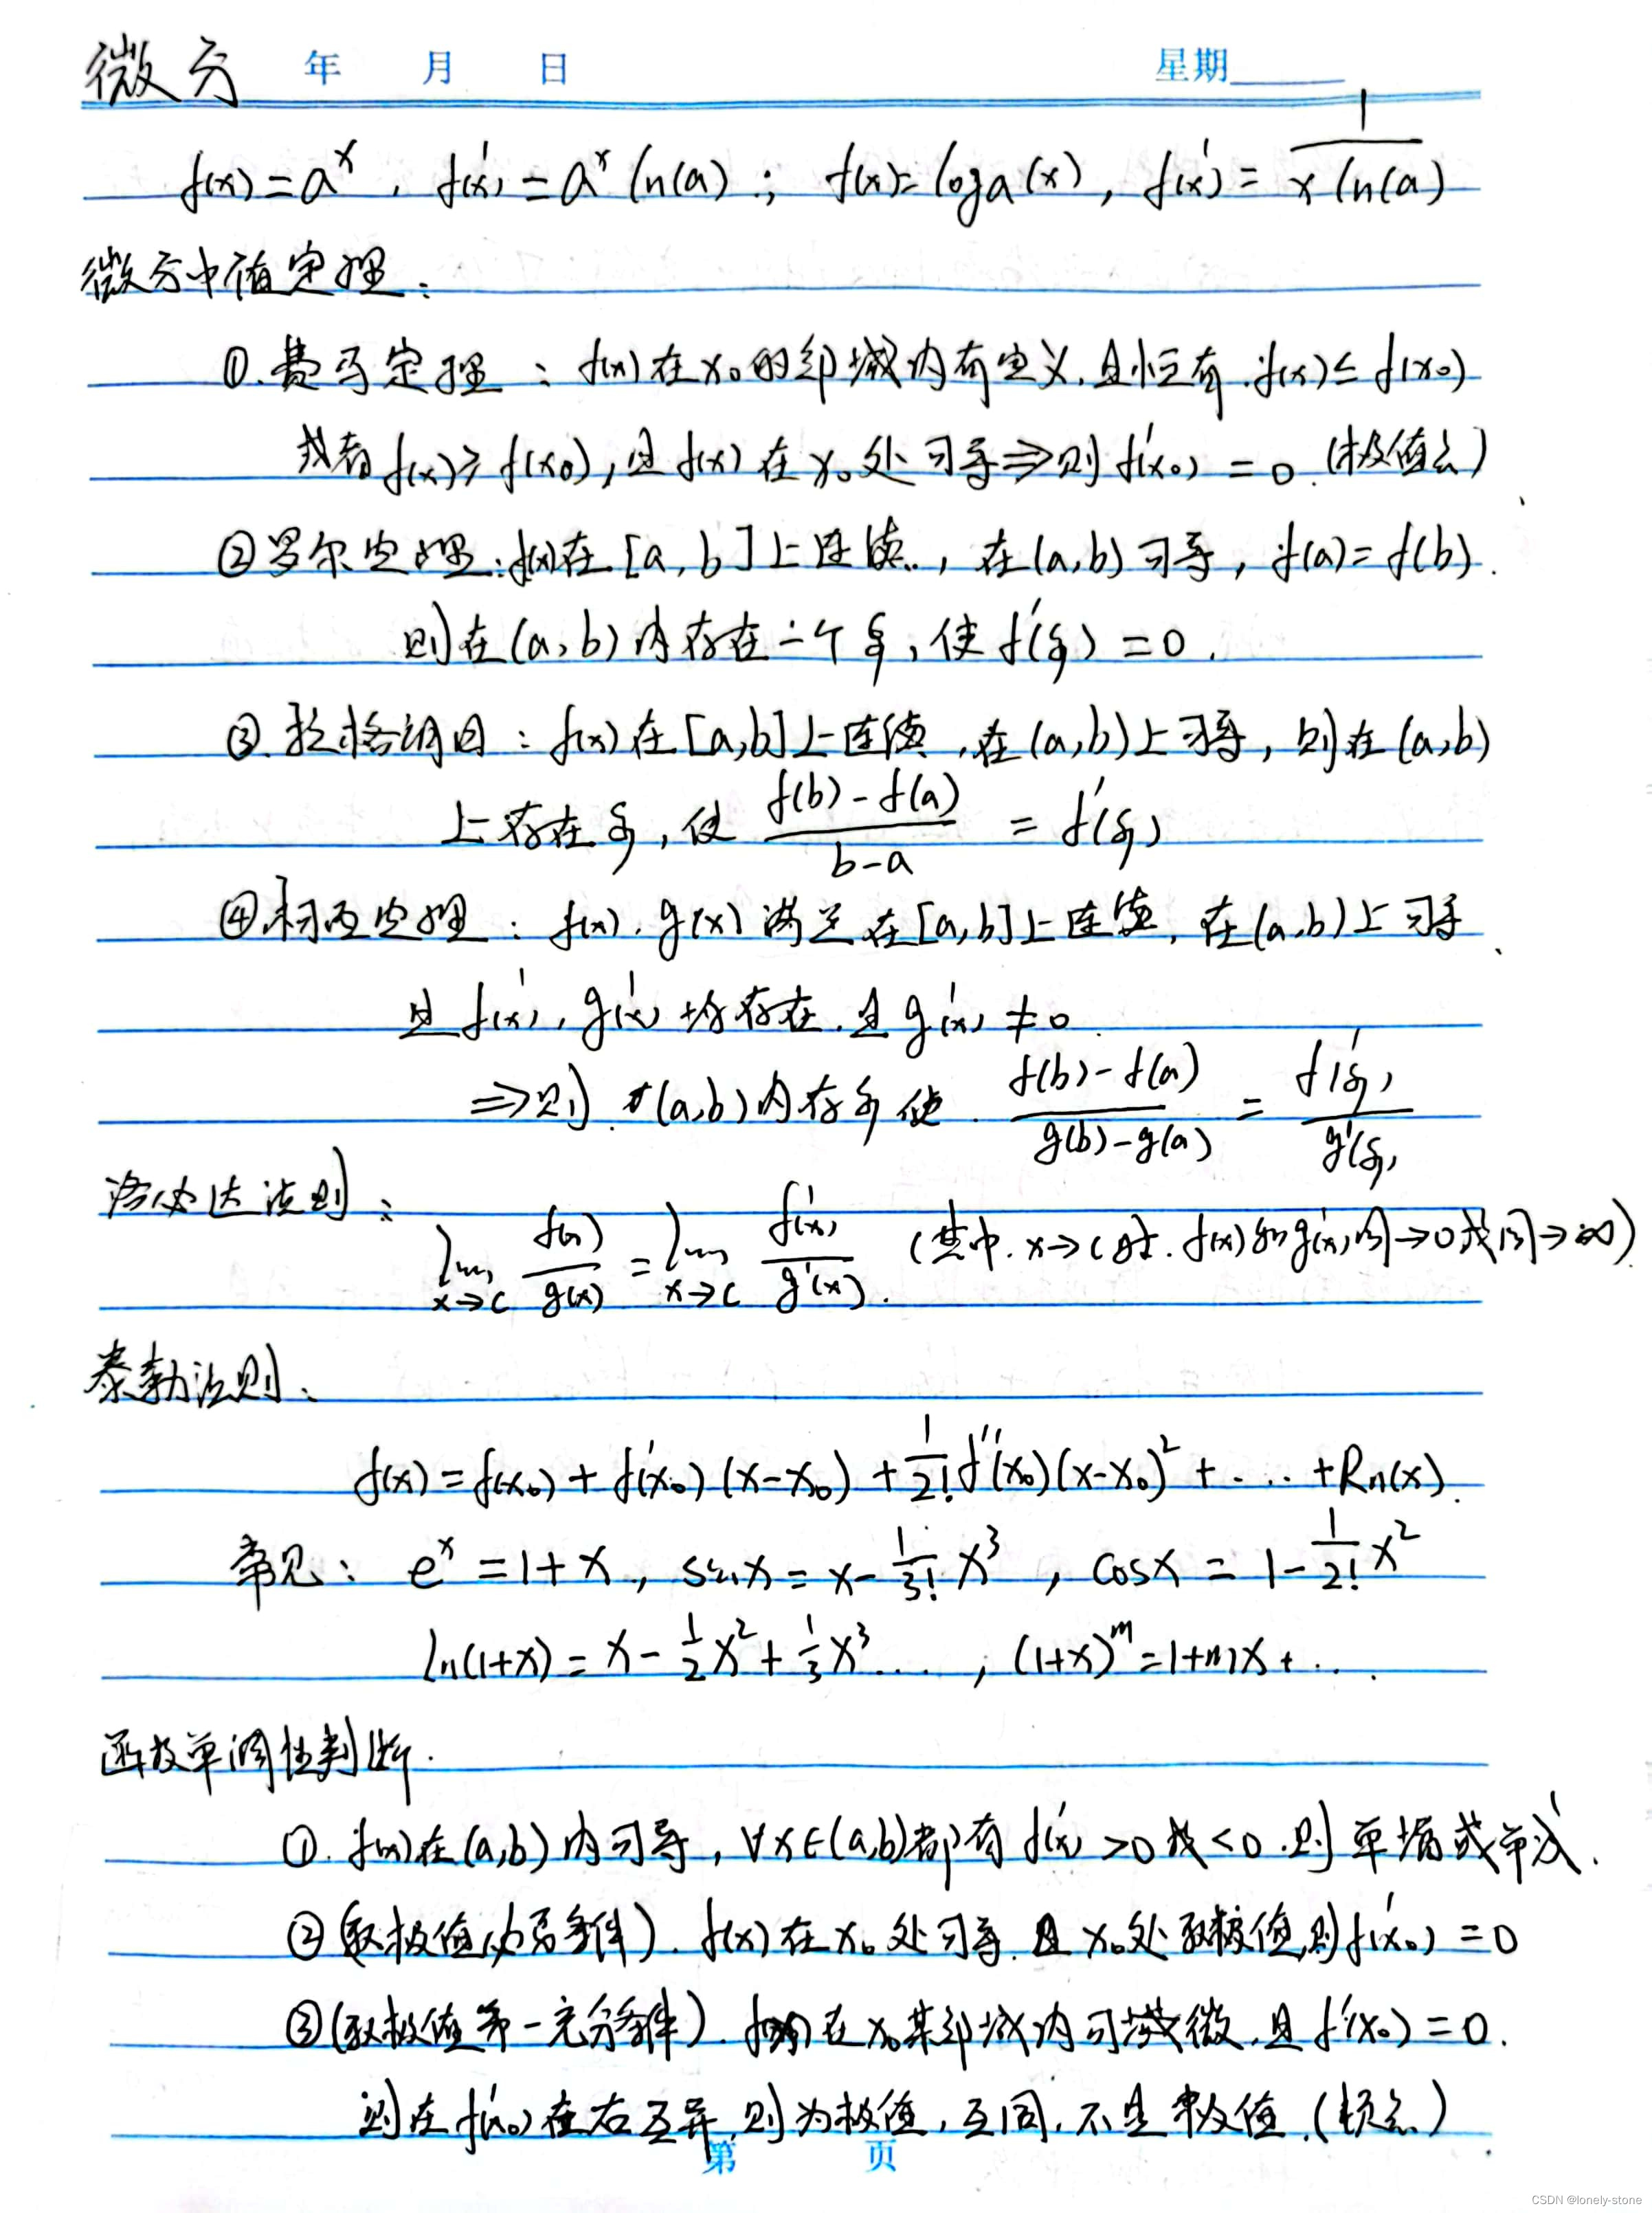 微分 年 月 日 星期
f(x)=a^x, f'(x)=a^x ln(a); f(x)=loga(x), f'(x)=1/(x ln(a))
微分中值定理:
①.费马定理:f(x)在x₀的邻域内有定义,且恒有.f(x)≤f(x₀)
或者f(x)≥f(x₀),且f(x)在x₀处可导⇒则f'(x₀)=0.(极值点)
②罗尔定理:f(x)在[a,b]上连续.,在(a,b)可导,f(a)=f(b).
则在(a,b)内存在一个ξ,使f'(ξ)=0.
③.拉格朗日:f(x)在[a,b]上连续,在(a,b)上可导,则在(a,b)
上存在ξ,使 (f(b)-f(a))/(b-a) = f'(ξ)
④柯西定理:f(x).g(x)满足在[a,b]上连续,在(a,b)上可导、
且f'(x),g'(x)均存在.且g'(x)≠0.
⇒则.在(a,b)内存ξ使.(f(b)-f(a))/(g(b)-g(a)) = f'(ξ)/g'(ξ)
洛必达法则:
lim x→c f(x)/g(x) = lim x→c f'(x)/g'(x). (其中.x→c时.f(x)和g'(x)同→0或同→∞).
泰勒法则:
f(x)=f(x₀)+f'(x₀)(x-x₀)+1/2! f''(x₀)(x-x₀)²+...+Rn(x).
常见:e^x=1+x, sinx=x-1/3! x³, cosx=1-1/2! x²
ln(1+x)=x-1/2 x²+1/3 x³...., (1+x)^m=1+mx+...
函数单调性判断.
①.f(x)在(a,b)内可导,∀x∈(a,b)都有f'(x)>0或<0.则单增或单减.
②(取极值必要条件).f(x)在x₀处可导.且x₀处取极值,则f'(x₀)=0
③(取极值第一充分条件).f(x)在x₀某邻域内可微.且f'(x₀)=0.
则在f'(x₀)在右互异,则为极值,互同.不是极值.(拐点)
第 页
CSDN @lonely-stone